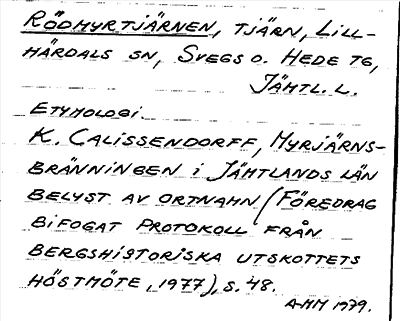 RÖDMYRTJÄRNEN, TJÄRN, LILL-
HÄRDALS SN, SVEGS O. HEDE TG,
JÄMTL. L.
ETYMOLOGI
K. CALISSENDORFF, MYRJÄRNS-
BRÄNNINGEN I JÄMTLANDS LÄN
BELYST AV ORTNAMN (FÖREDRAG
BIFOGAT PROTOKOLL FRÅN
BERGSHISTORISKA UTSKOTTETS
HÖSTMÖTE, 1977), S. 48.
A-MM 1979.